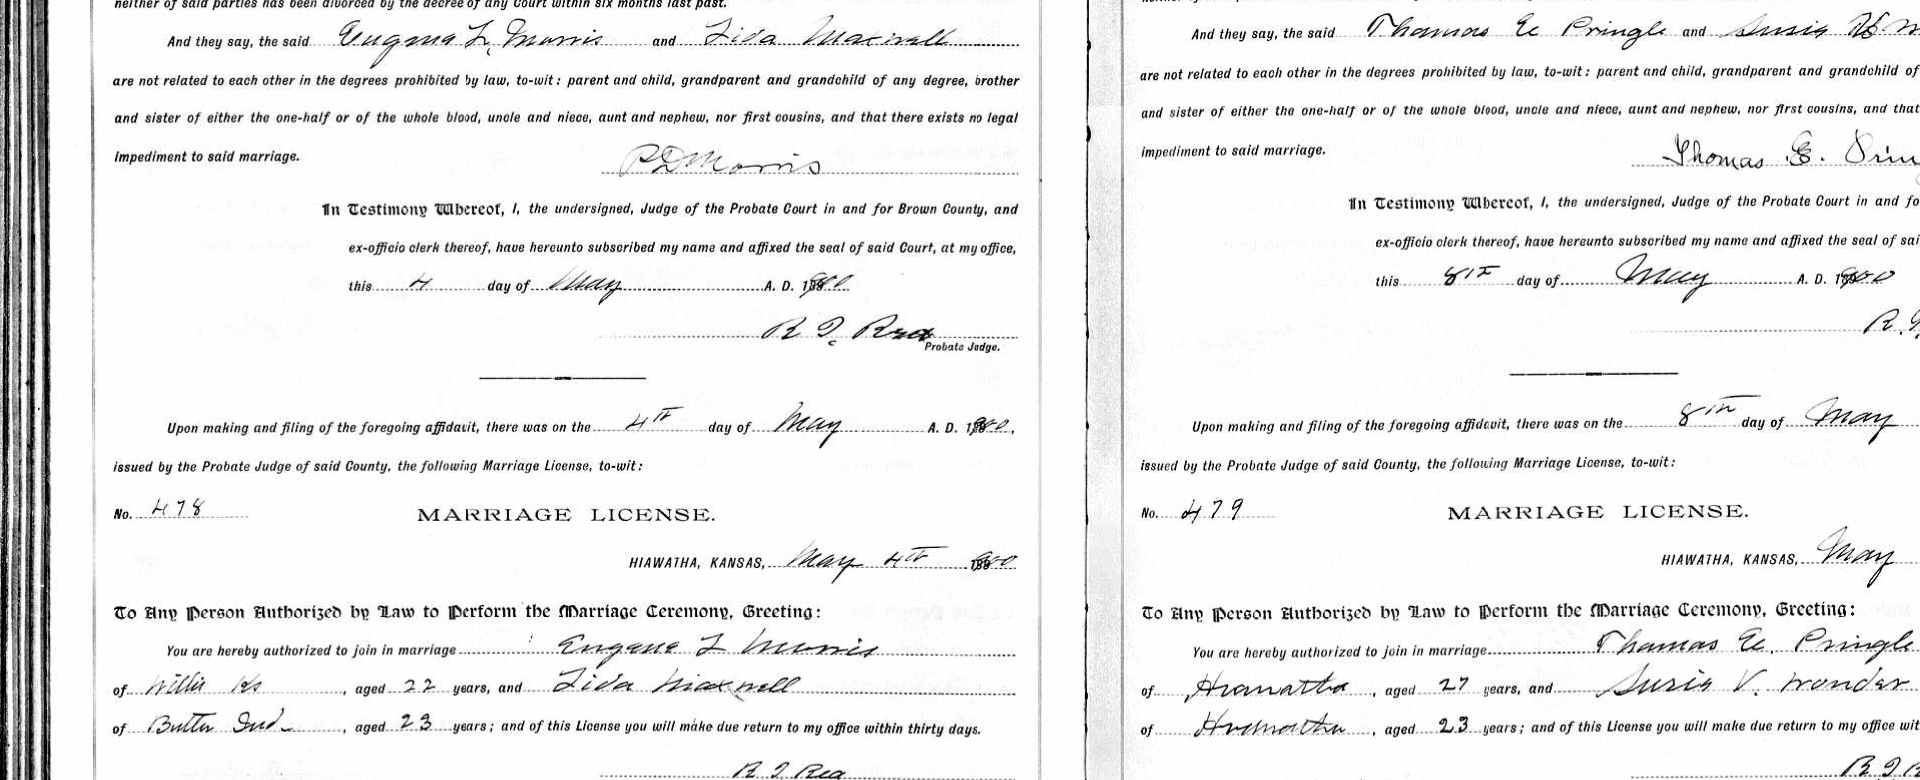 neither of said parties has been divorced by the decree of any Court within six months last past.
And they say, the said Eugene L. Morris and Lida Maxwell
are not related to each other in the degrees prohibited by law, to-wit: parent and child, grandparent and grandchild of any degree, brother
and sister of either the one-half or of the whole blood, uncle and niece, aunt and nephew, nor first cousins, and that there exists no legal
impediment to said marriage.
P D Morris
In Testimony Whereof, I, the undersigned, Judge of the Probate Court in and for Brown County, and
ex-officio clerk thereof, have hereunto subscribed my name and affixed the seal of said Court, at my office,
this 4 day of May A. D. 1900
R T Rea
Probate Judge.
Upon making and filing of the foregoing affidavit, there was on the 4th day of May A. D. 1900,
issued by the Probate Judge of said County, the following Marriage License, to-wit:
No. 478
MARRIAGE LICENSE.
HIAWATHA, KANSAS, May 4th 1900
To Any Person Authorized by Law to Perform the Marriage Ceremony, Greeting:
You are hereby authorized to join in marriage Eugene L Morris
of Willis Ks, aged 22 years, and Lida Maxwell
of Butler Ind, aged 23 years; and of this License you will make due return to my office within thirty days.
R T Rea
And they say, the said Thomas E Pringle and Susie
are not related to each other in the degrees prohibited by law, to-wit: parent and child, grandparent and grandchild of
and sister of either the one-half or of the whole blood, uncle and niece, aunt and nephew, nor first cousins, and that
impediment to said marriage.
Thomas E. Prin
In Testimony Whereof, I, the undersigned, Judge of the Probate Court in and fo
ex-officio clerk thereof, have hereunto subscribed my name and affixed the seal of sai
this 8th day of May A. D. 1900
R.
Upon making and filing of the foregoing affidavit, there was on the 8th day of May
issued by the Probate Judge of said County, the following Marriage License, to-wit:
No. 479
MARRIAGE LICENSE.
HIAWATHA, KANSAS, May
To Any Person Authorized by Law to Perform the Marriage Ceremony, Greeting:
You are hereby authorized to join in marriage Thomas E. Pringle
of Hiawatha, aged 27 years, and Susie V. Wonder
of Hiawatha, aged 23 years; and of this License you will make due return to my office wit
R T R